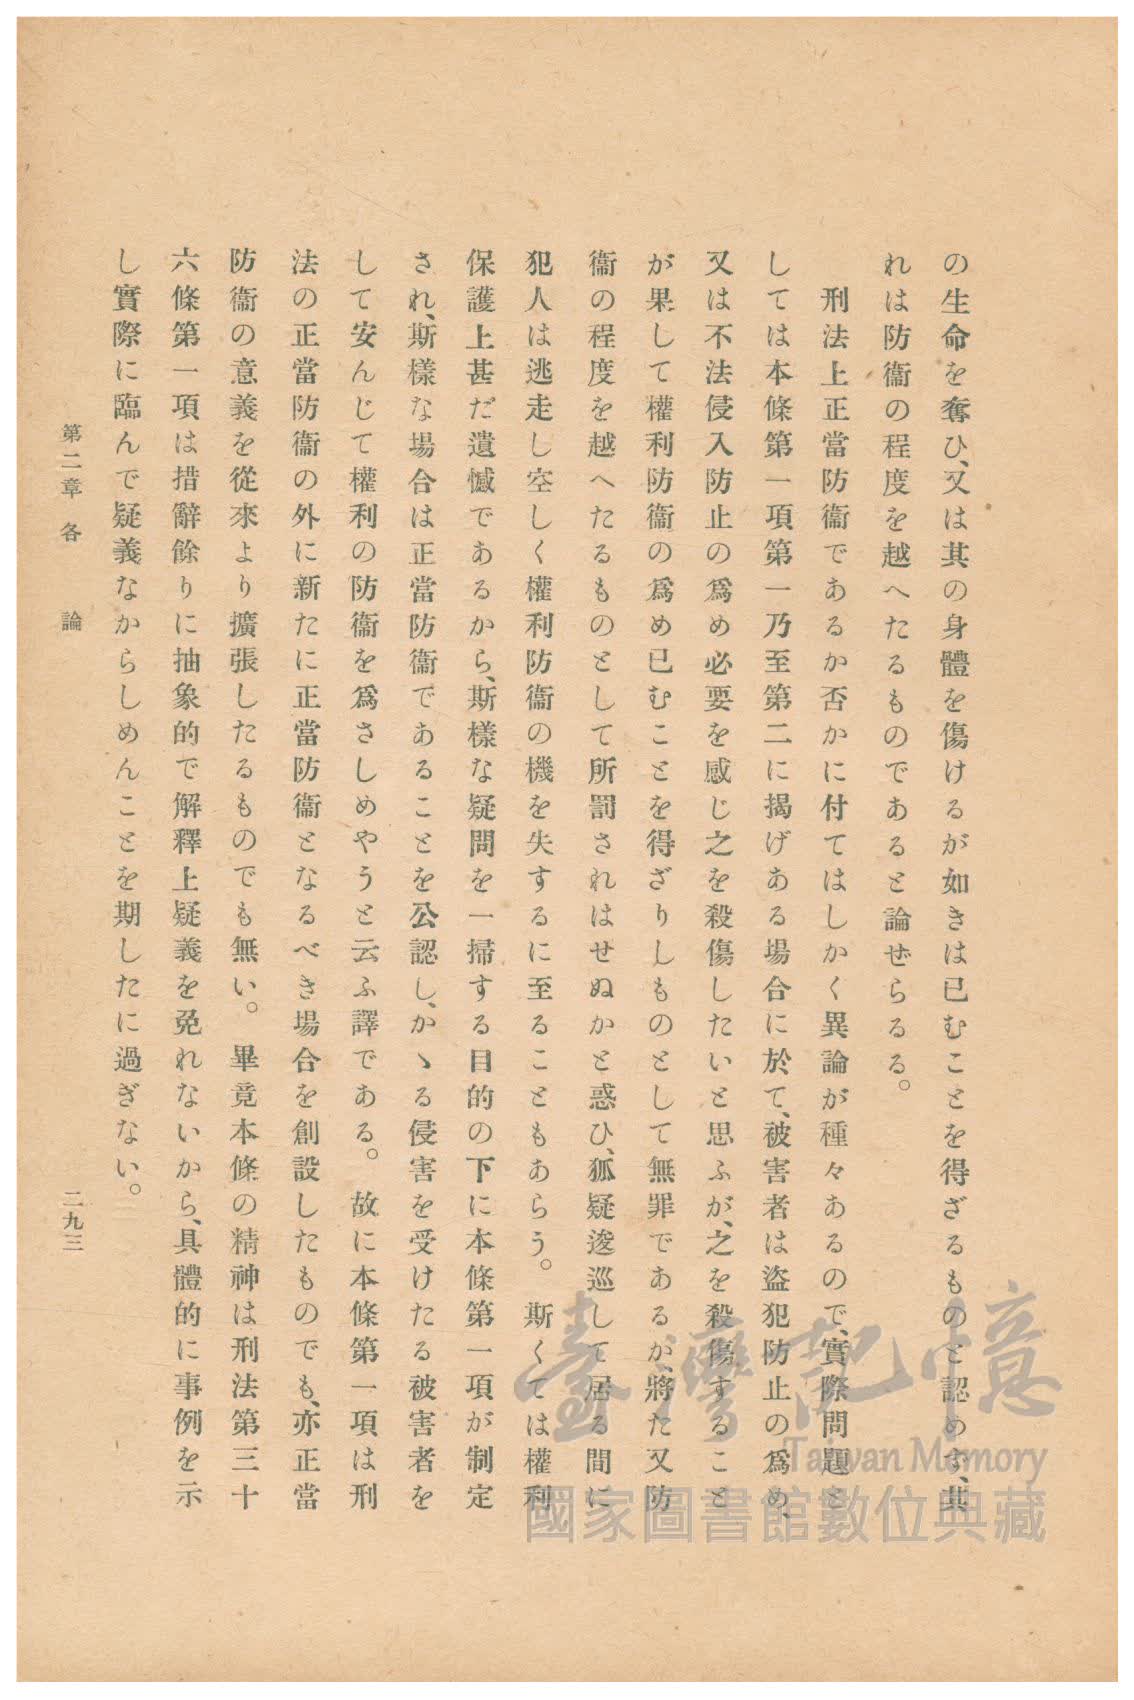 の生命を奪ひ、又は其の身體を傷けるが如きは已むことを得ざるものと認めず、其
れは防衞の程度を越へたるものであると論ぜらるる。
刑法上正當防衞であるか否かに付てはしかく異論が種々あるので、實際問題と
しては本條第一項第一乃至第二に揭げある場合に於て、被害者は盜犯防止の爲め、
又は不法侵入防止の爲め必要を感じ之を殺傷したいと思ふが、之を殺傷すること
が果して權利防衞の爲め已むことを得ざりしものとして無罪であるが、將た又防
衞の程度を越へたるものとして所罰されはせぬかと惑ひ、狐疑逡巡して居る間に
犯人は逃走し空しく權利防衞の機を失するに至ることもあらう。斯くては權利
保護上甚だ遺憾であるから、斯樣な疑問を一掃する目的の下に本條第一項が制定
され、斯樣な場合は正當防衞であることを公認し、かゝる侵害を受けたる被害者を
して安んじて權利の防衞を爲さしめやうと云ふ譯である。故に本條第一項は刑
法の正當防衞の外に新たに正當防衞となるべき場合を創設したものでも、亦正當
防衞の意義を從來より擴張したるものでも無い。畢竟本條の精神は刑法第三十
六條第一項は措辭餘りに抽象的で解釋上疑義を免れないから、具體的に事例を示
し實際に臨んで疑義なからしめんことを期したに過ぎない。
第二章 各論
二九三
臺灣記憶
Taiwan Memory
國家圖書館數位典藏